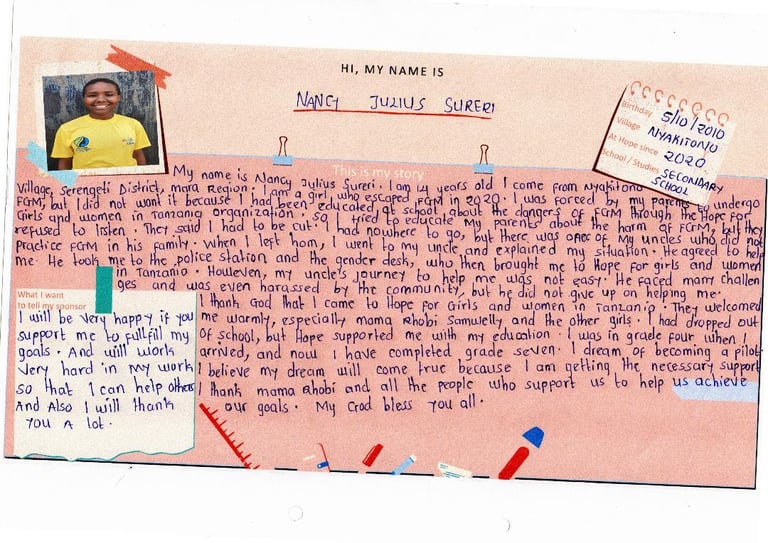 HI, MY NAME IS
NANCY JULIUS SURERI
Birthday 5/10/2010
Village NYAKITONO
At Hope since 2020
School / Studies SECONDARY
SCHOOL
This is my story
My name is Nancy Julius Sureri. I am 14 years old I come from Nyakitono
Village, Serengeti District, mara Region. I am a girl who escaped FGM in 2020. I was forced by my parents to undergo
FGM, but I did not want it because I had been educated at school about the dangers of FGM through the Hope for
Girls and women in Tanzania organization. So I tried to educate my parents about the harm of FGM, but they
refused to listen. They said I had to be cut. I had nowhere to go, but there was one of My uncles who did not
practice FGM in his family. When I left hom, I went to my uncle and explained my situation. He agreed to help
me. He took me to the police station and the gender desk, who then brought me to Hope for girls and women
in Tanzania. However, my uncle's journey to help me was not easy. He faced many challen
ges and was even harassed by the community, but he did not give up on helping me.
I thank God that I came to Hope for Girls and women in Tanzania. They welcomed
me warmly, especially mama Rhobi Samwelly and the other girls. I had dropped out
of school, but Hope supported me with my education. I was in grade four when I
arrived, and now I have completed grade seven. I dream of becoming a pilot
I believe my dream will come true because I am getting the necessary support
I thank mama Rhobi and all the people who support us to help us achieve
our goals. My God bless you all.
What I want
to tell my sponsor
I will be very happy if you
support me to fullfill my
goals. And will work
very hard in my work
so that I can help others
And Also I will thank
you A lot.